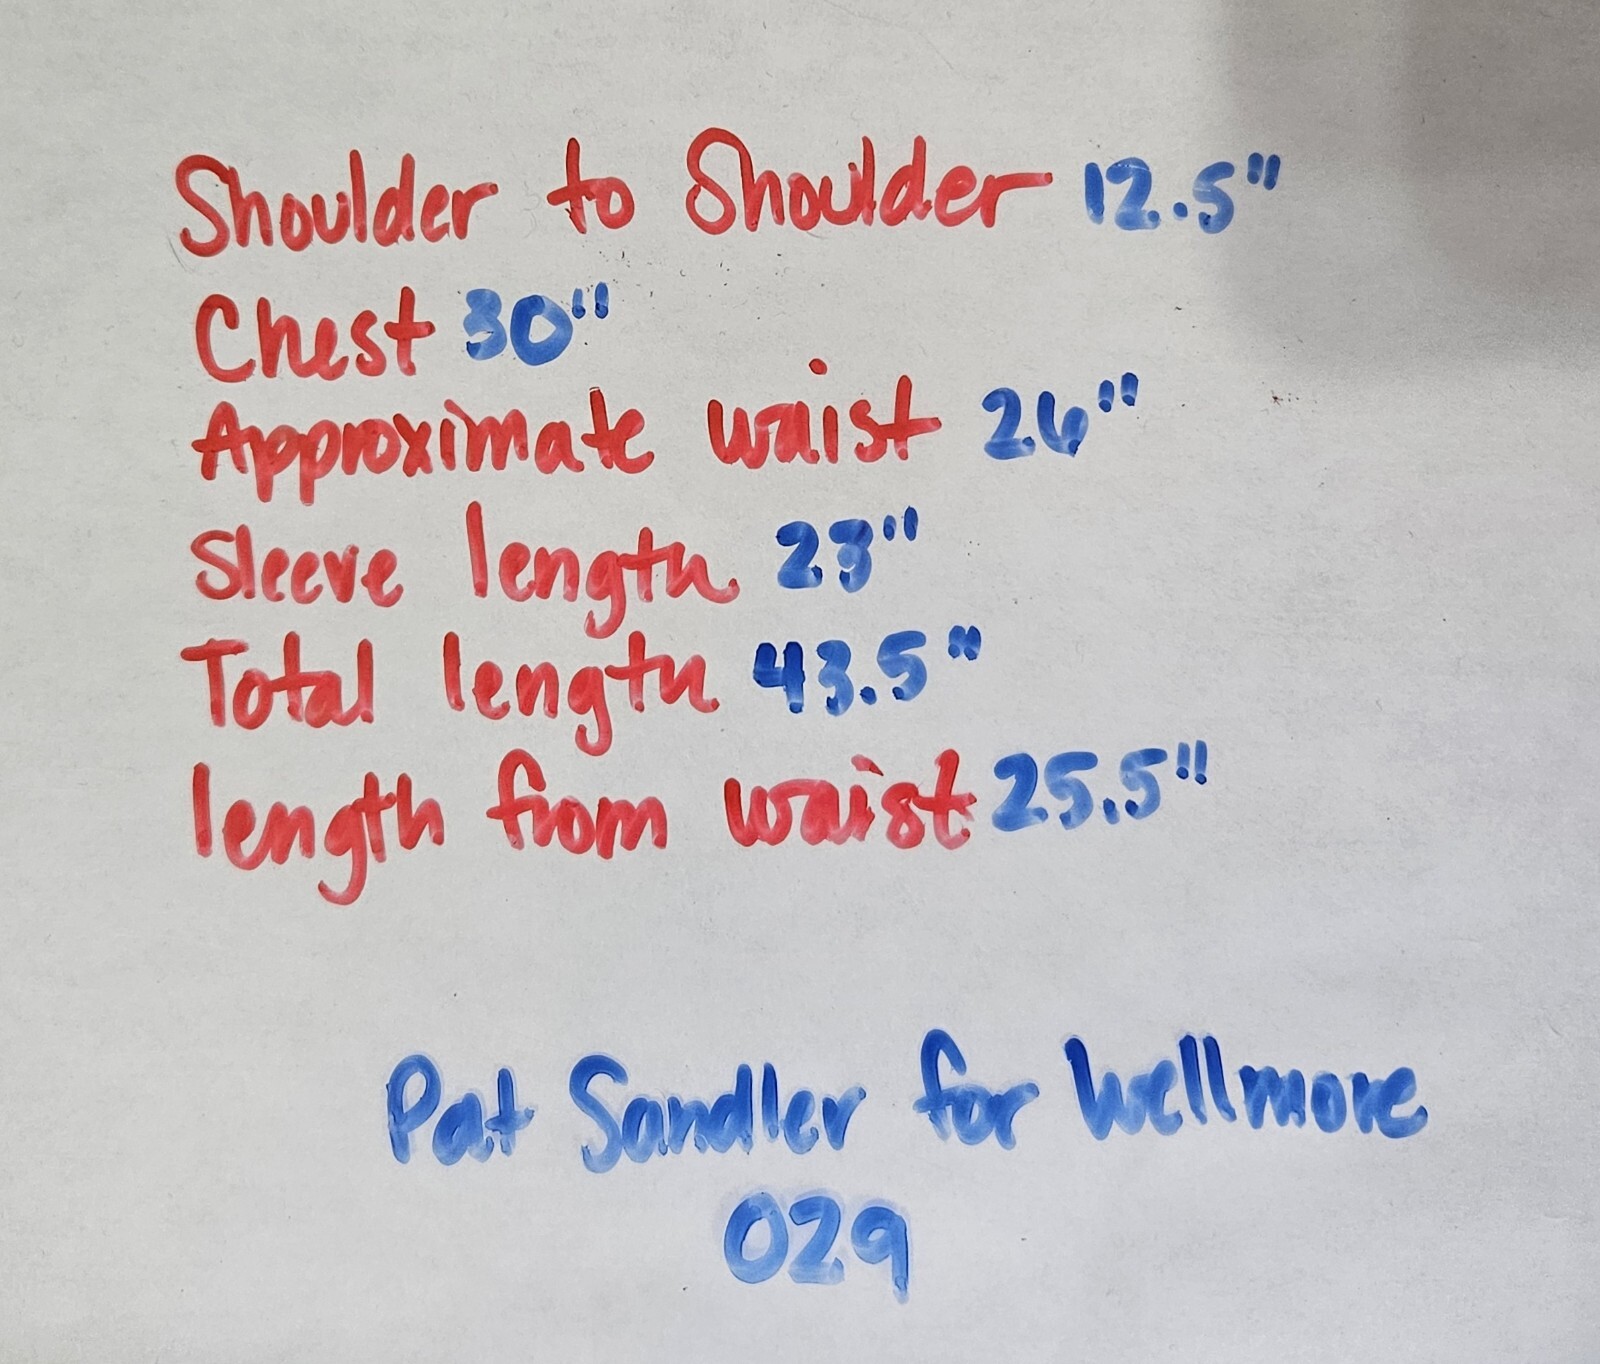 Shoulder to Shoulder 12.5"
Chest 30"
Approximate waist 26"
Sleeve length 23"
Total length 43.5"
length from waist 25.5"
Pat Sandler for Wellmore
029